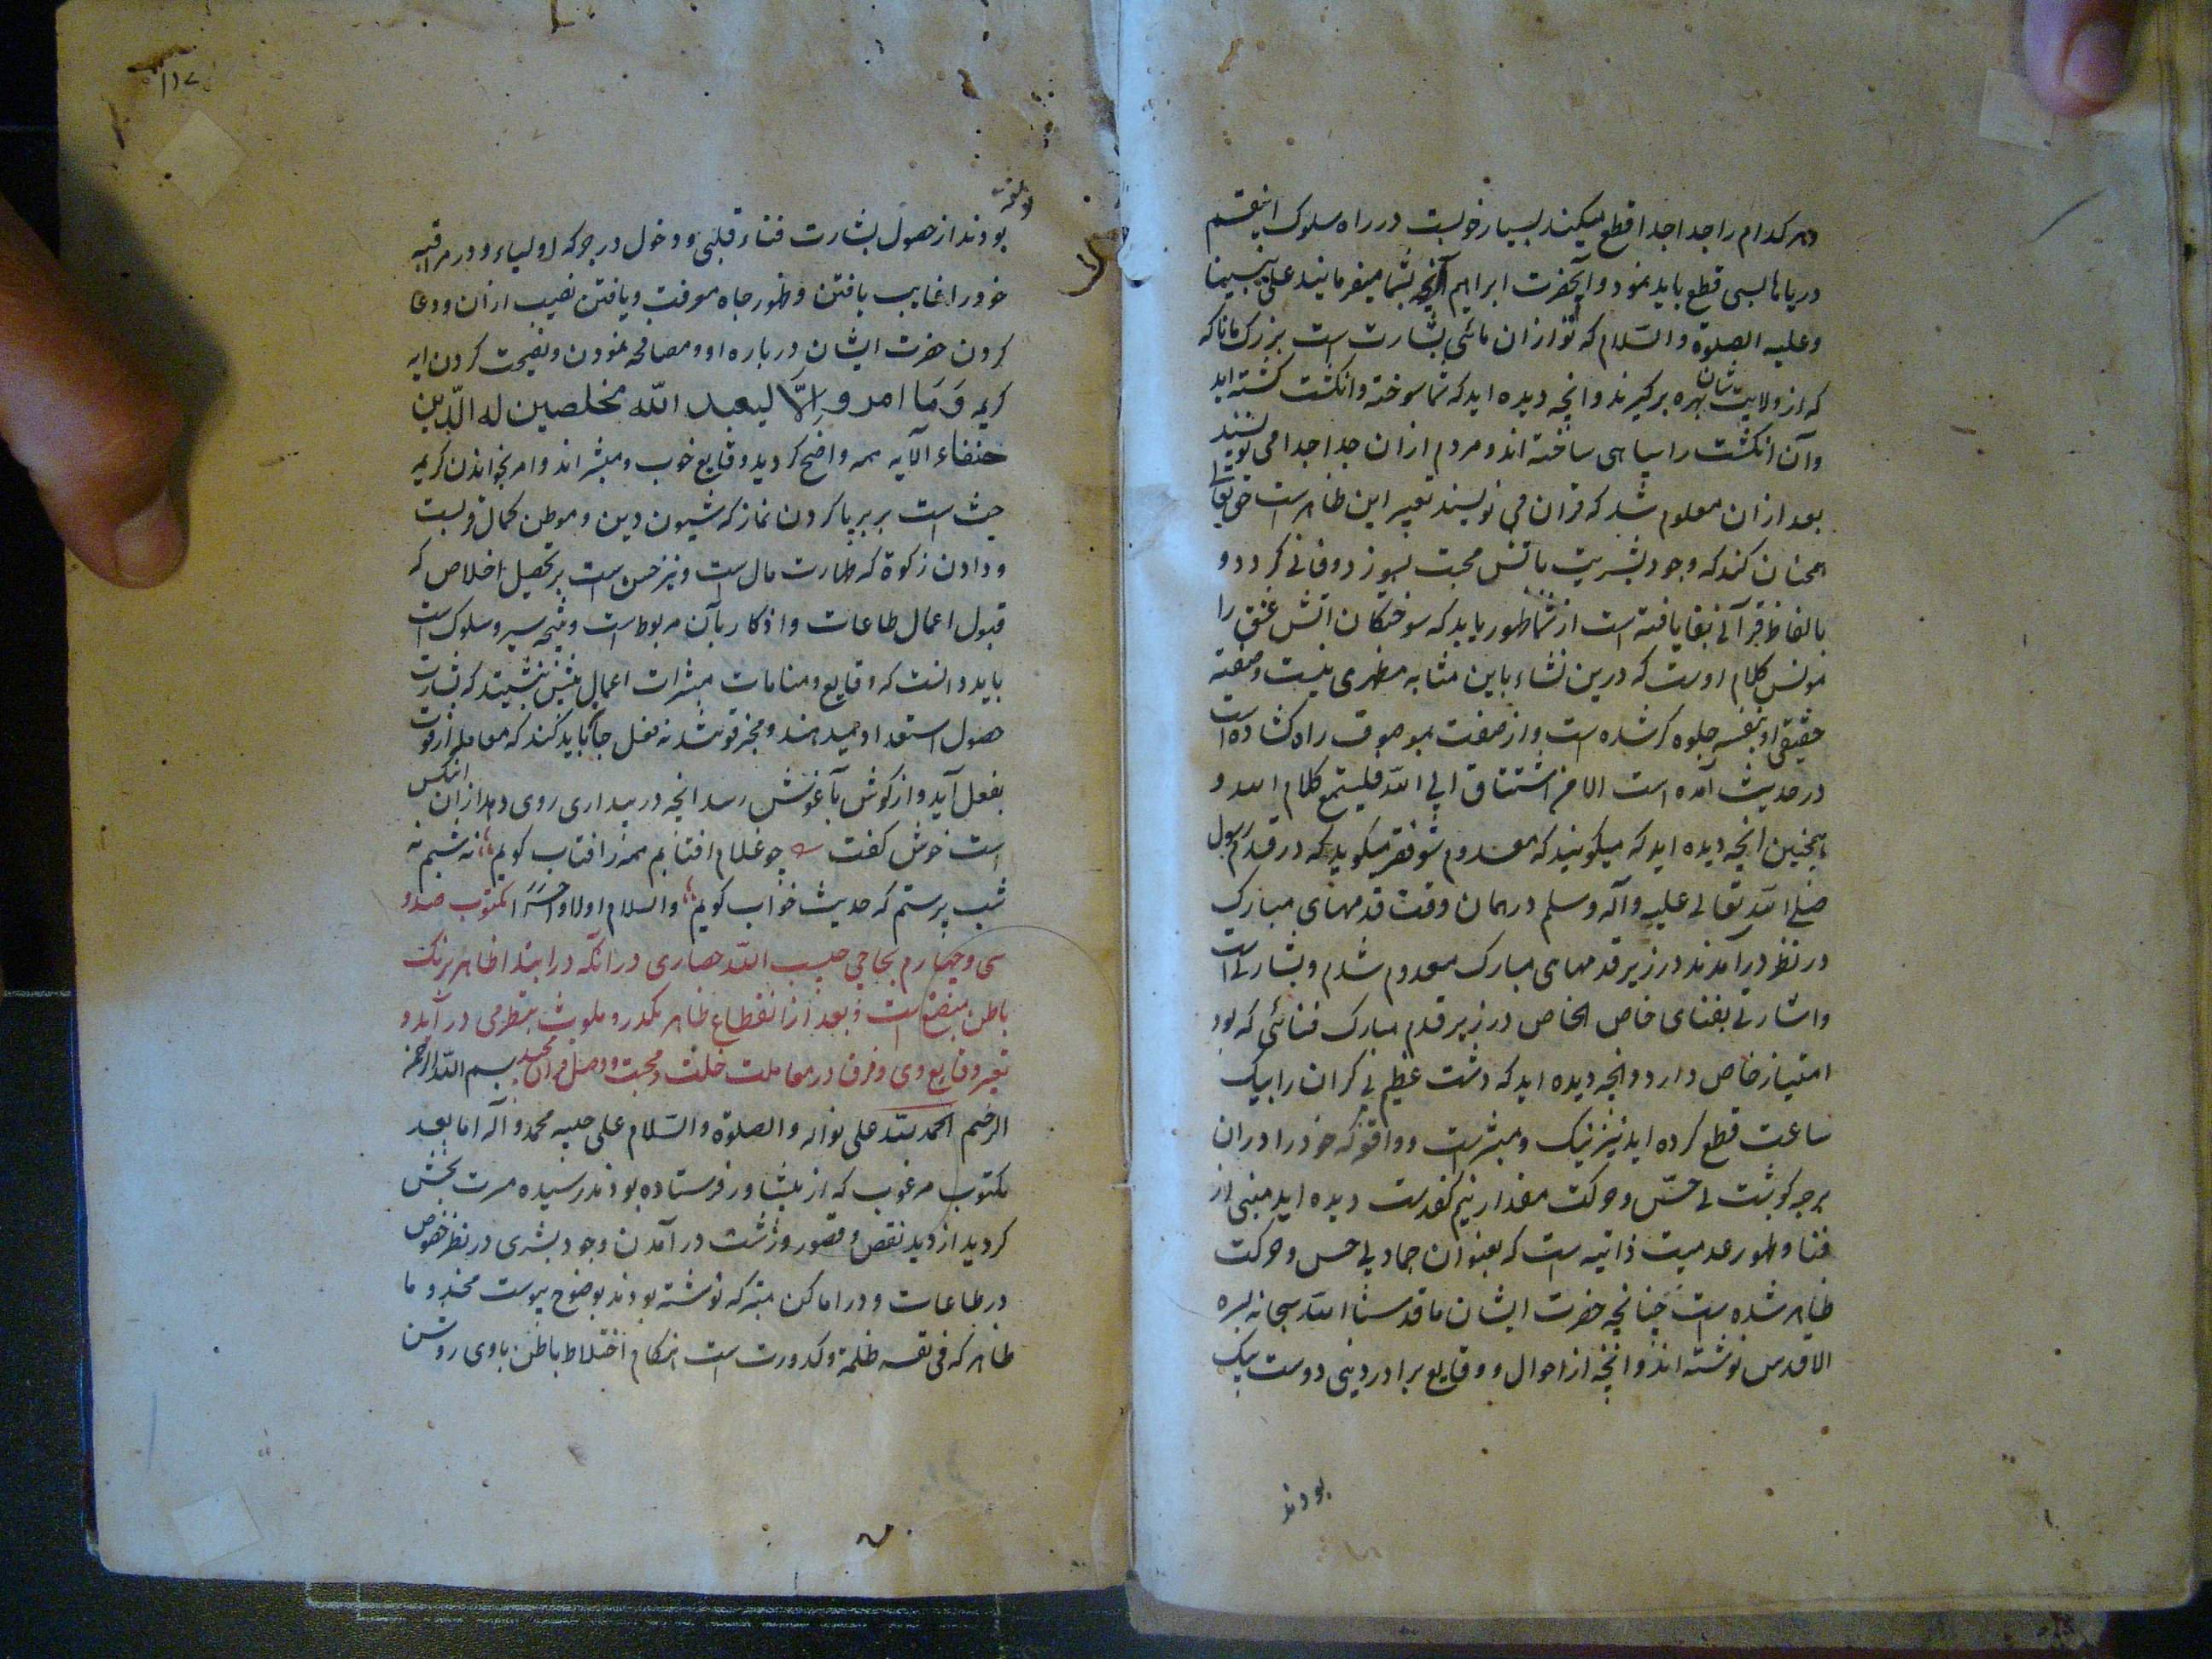 و هر کدام را جدا جدا قطع میکنید بسیار خوبست در راه سلوک اینقسم
دریاها بسی قطع باید نمود و آنحضرت ابراهیم آنچه بشما میفرمایند علی نبینا
وعلیه الصلوة والسلام که تو از ان مائی بشارت است بزرگ مانا که
که از ولایت شان بهره برگیرند و انچه دیده اید که شما سوخته و انکشت کشته اید
و آن انکشت را سیاهی ساخته اند و مردم ازان جدا جدا می نویسند
بعد ازان معلوم شد که قران می نویسند تعبیر این ظاهر است حق تعالی
همچنان کند که وجود بشریت باتش محبت بسوزد و فانی کردد و
بالفاظ قرآنی بقا یافته است از شما ظهور یابد که سوختکان اتش عشق را
مونس کلام اوست که درین نشاء باین مثابه مظهری نیست و صفته
حقیقی او بنفسه جلوه کر شده است و از صفت بموصوف راه کشاده است
در حدیث آمده است الا من اشتاق الی الله فلیستمع کلام الله و
همچنین انچه دیده اید که میکویند که معدوم شو فقیر میکوید که در قدم رسول
صلی الله تعالی علیه وآله وسلم در همان وقت قدمهای مبارک
در نظر درآمدند در زیر قدمهای مبارک معدوم شدم و بشارتی است
واشارتی بفنای خاص الخاص در زیر قدم مبارک فنائی که بود
امتیاز خاص دارد و انچه دیده اید که دشت عظیم بی کران را بیک
ساعت قطع کرده اید نیز نیک و مبشر است و واقعه که خود را دران
برچه کوشت بی حس و حرکت مقدار نیم کفدست دیده اید مبنی از
فنا و ظهور عدمیت ذاتیه است که بعنوان جماد بی حس و حرکت
ظاهر شده است چنانچه حضرت ایشان ما قدسنا الله سبحانه بسره
الاقدس نوشته اند و انچه از احوال و وقایع برادر دینی دوست بیک
بودند
۱۱۷
نوشته
بودند از حصول بشارت فناء قلبی و دخول در جرکه اولیاء و در مراقبه
خود را غایب یافتن و ظهور جاه معرفت و یافتن نصیب ازان و دعا
کردن حضرت ایشان درباره او و مصافحه نمودن و نصیحت کردن ایه
کریمه وَمَا امروا اِلَّا لیعبد الله مخلصین له الدین
حنفاء الآیه همه واضح کردید وقایع خوب و مبشر اند و امر بخواندن کریمه
حث است بر برپا کردن نماز که ستون دین و موطن کمال قربست
و دادن زکوة که طهارت مال است و نیز حسن است بر تحصیل اخلاص که
قبول اعمال طاعات و اذکار بآن مربوط است و نتیجه سیر و سلوک است
باید دانست که وقایع و منامات مبشرات اعمال بیش نیستند که بشارت
حصول استعداد میدهند و مخبر قوتند نه فعل جا باید کند که معامله از قوت
بفعل آید و از کوش بآغوش رسد انچه در بیداری روی دهد ازان انکس
است خوش کفت چو غلام افتابم همه ز افتاب کویم نه شبم نه
شب پرستم که حدیث خواب کویم والسلام اولا وآخرًا مکتوب صد و
سی و چهارم بحاجی حبیب الله حصاری در انکه در ابتدا ظاهر برنک
باطن منصبغ است و بعد از انقطاع ظاهر مکدر و ملوث بنظر می درآید و
تعبیر وقایع وی و فرق در معاملت خلت و محبت و وصل قران مجید بسم الله الرحمن
الرحیم الحمد لله علی نواله والصلوة والسلام علی حبیبه محمد وآله اما بعد
مکتوب مرغوب که از پشاور فرستاده بودند رسیده مسرت بخش
کردید از دید نقص و قصور و زشت درآمدن وجود بشری در نظر خصوص
در طاعات و در اماکن متبرکه نوشته بودند بوضوح پیوست مخدوما
ظاهر که فی نفسه ظلمة و کدورت است هنکام اختلاط باطن باوی روشن